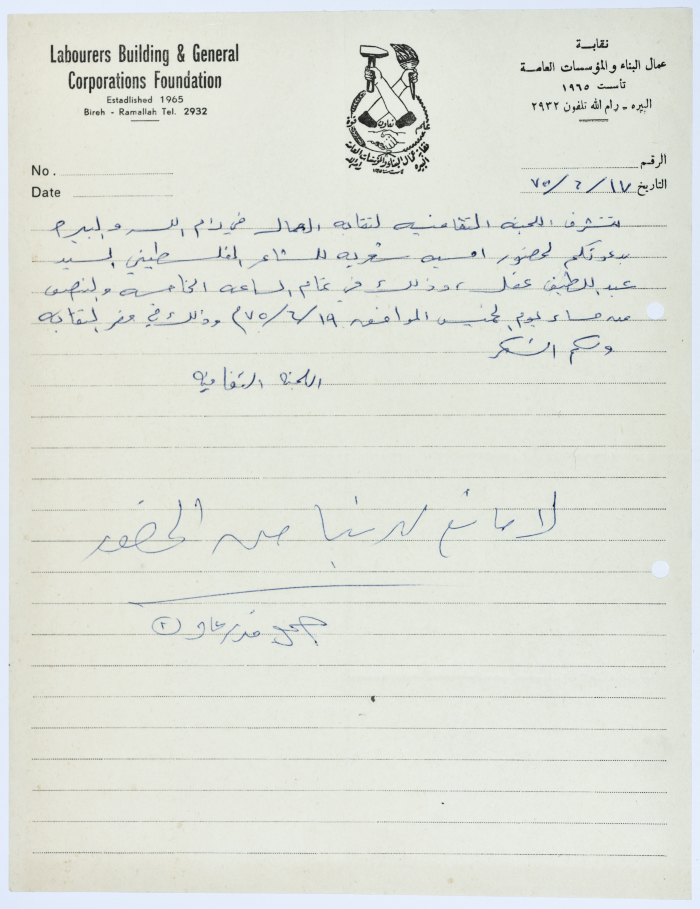 Labourers Building & General
Corporations Foundation
Estadlished 1965
Bireh - Ramallah Tel. 2932
نقابة
عمال البناء والمؤسسات العامة
تأسست ١٩٦٥
البيره - رام الله تلفون ٢٩٣٢
تعاون
No.
Date
الرقم
التاريخ ١٧/٦/٧٥
تتشرف اللجنة الثقافية لنقابة العمال في رام الله والبيرة
بدعوتكم لحضور امسية شعرية للشاعر الفلسطيني السيد
عبد اللطيف عقل، وذلك في تمام الساعة الخامسة والنصف
من مساء يوم الخميس الموافق ١٩/٦/٧٥م وذلك في مقر النقابة
ولكم الشكر
اللجنة الثقافية
لا مانع لدينا من الحضور